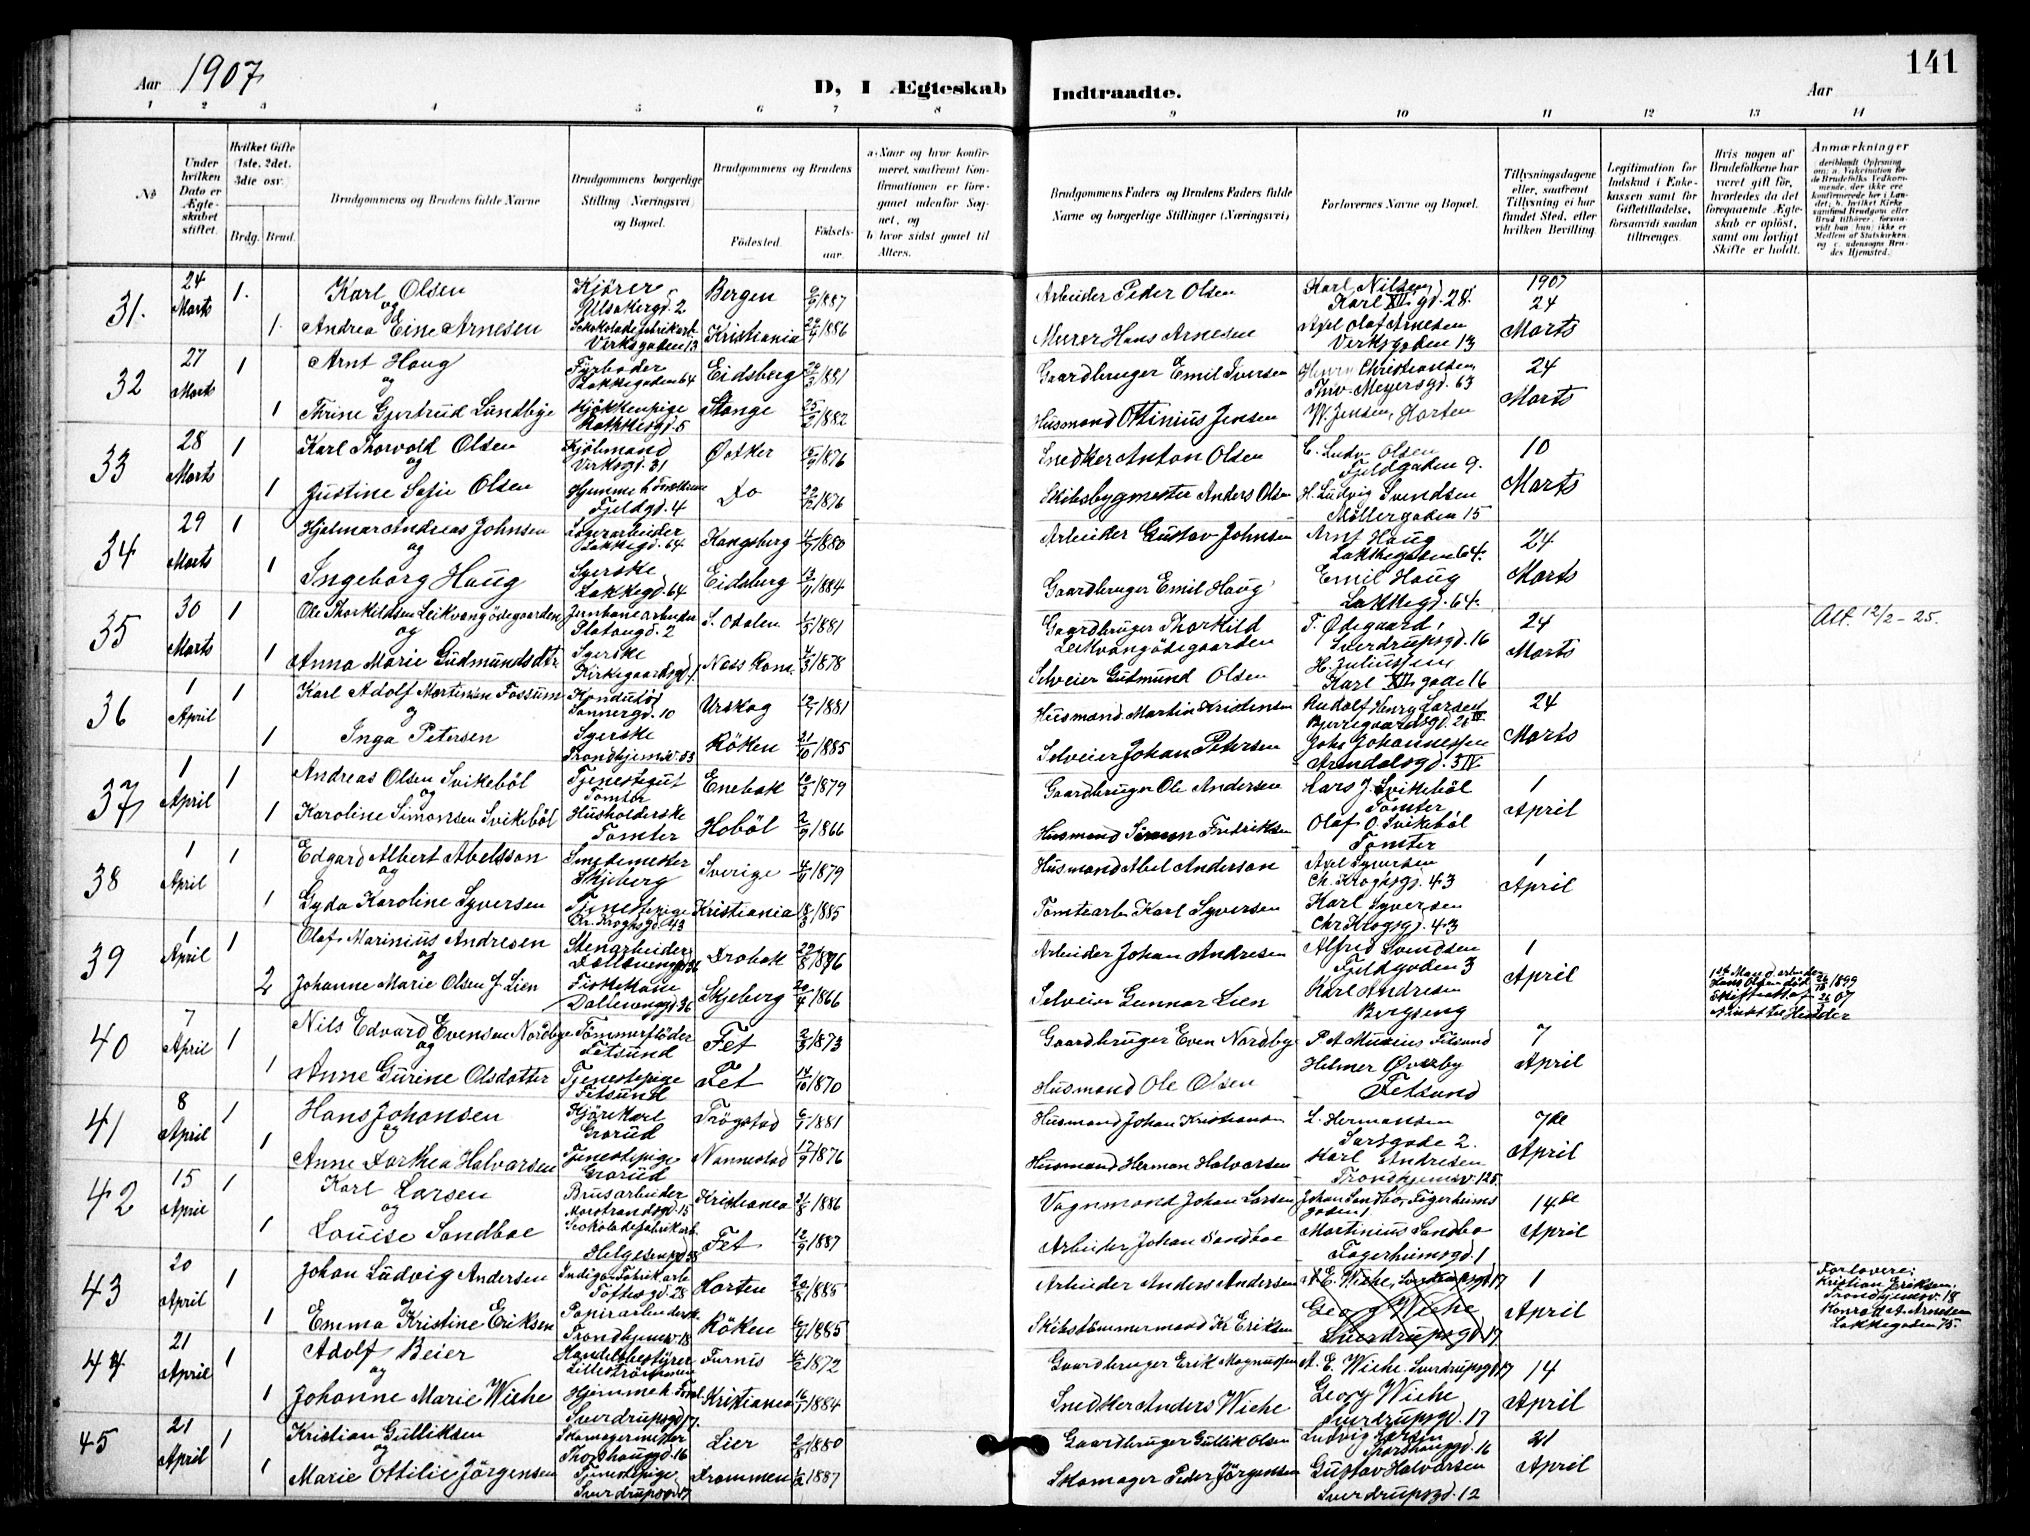 Aar 1907
D, I Ægteskab Indtraadte.
Aar
141
1 2 3 4 5 6 7 8 9 10 11 12 13 14
No
Under hvilken Dato er Ægteskabet stiftet.
Hvilket Gifte (1ste, 2det, 3die osv.
Brdg. Brud.
Brudgommens og Brudens fulde Navne
Brudgommens borgerlige Stilling (Næringsvei) og Bopæl.
Brudgommens og Brudens
Fødested.
Fødselsaar.
a. Naar og hvor konfirmeret, saafremt Konfirmationen er foregaaet udenfor Sognet, og
b. hvor sidst gaaet til Alters.
Brudgommens Faders og Brudens Faders fulde Navne og borgerlige Stillinger (Næringsvei)
Forlovernes Navne og Bopæl.
Tillysningsdagene eller, saafremt Tillysning ei har fundet Sted, efter hvilken Bevilling.
Legitimation for Indskud i Enkekassen samt for Giftetilladelse, forsaavidt saadan tiltrænges.
Hvis nogen af Brudefolkene har været gift før, hvorledes da det foregaaende Ægteskab er opløst, samt om lovligt Skifte er holdt.
Anmærkninger
31. 24 Marts 1. Karl Olsen Kjører Bergen 1887 Arbeider Peder Olsen Karl Nilsen Karl XII gd. 28 1907 24 Marts
og
1. Andrea Eine Arnesen Virksgaden 13 Kristiania 1886 Murer Hans Arnesen Axel Olaf Arnesen Virksgaden 13
32 27 Marts 1 Arnt Haug Fyrbøder Lakkegaden 64 Eidsberg 1881 Gaardbruger Emil Iversen Henry Christiansen Thv. Meyersgd. 63 24 Marts
og
1 Thrine Gjertrud Lundbye Kjøkkenpige Rathkesgd. 5 Stange 1882 Husmand Ottinius Jensen W. Jensen, Horten
33 28 Marts 1 Karl Thorvald Olsen Kjølmand Virksgd. 31 1876 Snedker Anton Olsen C. Ludv. Olsen Fjeldgaden 9. 10 Marts
og
1 Justine Sofie Olsen Hjemme h. Forældrene Fjeldgd. 4 Do 1876 Skibsbygmester Anders Olsen H. Ludvig Svendsen Møllergaden 15
34 29 Marts 1 Hjalmar Andreas Johnsen Lagerarbeider Lakkegd. 64. Kongsberg 1880 Arbeider Gustav Johnsen Arnt Haug Lakkegaden 64. 24 Marts
og
1 Ingeborg Haug Syerske Lakkegd. 64 Eidsberg 1884 Gaardbruger Emil Haug Emil Haug Lakkegd. 64.
35 30 Marts 1 Ole Thorkildsen Leikvangödegaarden Jernbanearbeider Platougd. 2 S. Odalen 1881 Gaardbruger Thorkild Leikvangödegaarden T. Ødegaard, Sverdrupsgd. 16 24 Marts Att. 12/2-25.
og
1 Anna Marie Gudmundsdtr Syerske Kirkegaardsgd. Næs Rom. 1878 Selveier Gutmund Olsen H. Juliussen Karl XII gade 16
36 1 April 1 Karl Adolf Martinsen Fossum Konduktør Sannergd. 10 Urskog 1881 Husmand Martin Kristensen Rudolf Henry Larsen 24 Marts
og
1 Inga Petersen Syerske Trondhjemsv. 53 Röken 21/10 1885 Selveier Johan Petersen Johs Johannessen Arendalsgd. 3 IV.
37 1 April 1 Andreas Olsen Svikeböl Tjenestegut Tomter Enebak 1879 Gaardbruger Ole Andersen Lars J. Svikeböl Tomter 1 April
og
1 Karoline Simonsen Svikeböl Husholderske Tomter Hoböl 1866 Husmand Simen Fredriksen Olaf O. Svikeböl Tomter
38 1 April 1 Edgard Albert Abelsson Smedemester Skjeberg Sverige 1879 Husmand Abel Anderson Axel Syversen Ch. Kroghsgd. 43 1 April
og
1 Gyda Karoline Syversen Tjenestepige Chr. Kroghsgd. 43 Kristiania 18/3 1885 Tomtearb. Karl Syversen Karl Syversen Chr Krogsgd. 43
39 1 April 1 Olaf Marinius Andresen Stenarbeider Drøbak 29/8 1876 Arbeider Johan Andresen Alfred Svendsen Fjeldgaden 3 1 April
og
2 Johanne Marie Olsen f. Lien Fiskekone Dalleveng 36 Skjeberg 20/4 1866 Selveier Gunnar Lien Karl Andresen Bergseng
1st Mand arbeider Lars Olsen død 1899
40 7 April 1 Nils Edvard Evensen Nordbye Tömmerflöder Fetsund Fet 2/3 1873 Gaardbruger Even Nordbye P. A. Fetsund 7 April
og
1 Anne Gurine Olsdotter Tjenestepige Fetsund Fet 14/10 1870 Husmand Ole Olsen Helmer Øverby Fetsund
41 8 April 1 Hans Johansen Kjörekarl Grorud Trögstad 1881 Husmand Johan Kristiansen L. Hermansen Sarsgade 2. 7de April
og
1 Anne Dorthea Halvorsen Tjenestepige Grorud Nannestad 17/9 1876 Husmand Herman Halvorsen Karl Andresen Trondhjemsv. 125.
42 15 April 1 Karl Larsen Brusarbeider Marstrandsgd. 15 Kristiania 1886 Vognmand Johan Larsen Johan Sandbo, Fagerheimsgaden 1 14de April
og
1 Louise Sandboe Helgesensgd. Fet 12/9 1887 Arbeider Johan Sandboe Martinius Sandbo Fagerheimsgd. 1
43 20 April 1 Johan Ludvig Andersen Toftesgd. 28 Horten 1885 Arbeider Anders Andersen A. E. Wiehe, Sverdrupsgd. 17 1 April
og
1 Emma Kristine Eriksen Papirarbeiderske Trondhjemsv. 18 Röken 1885 Skibstömmermand Kr Eriksen Georg Wiehe Sverdrupsgd. 17
Forlovere: Kristian Eriksen, Trondhjemsv. 18 Konrad A. Arnesen Lakkegaden 75.
44 21 April 1 Adolf Beier Handelsbestyrer Lilleströmmen Furnes 1872 Gaardbruger Erik Magnussen A. E. Wiehe. Sverdrupsgd. 17 14 April
og
1 Johanne Marie Wiehe Hjemme h. Foræl. Sverdrupsgd. 17. Kristiania 1884 Snedker Anders Wiehe Georg Wiehe Sverdrupsgd. 17
45 21 April 1 Kristian Gulliksen Skomagermester Thorshaugsgd. 16 Lier 1880 Gaardbruger Gullik Olsen Ludvig Larsen Thorshaugsgd. 16 21 April
og
1 Marie Ottilie Jörgensen Tjenestepige Sverdrupsgd. 17 Drammen 1887 Skomager Peder Jörgensen Gustav Halvorsen Sverdrupsgd. 12